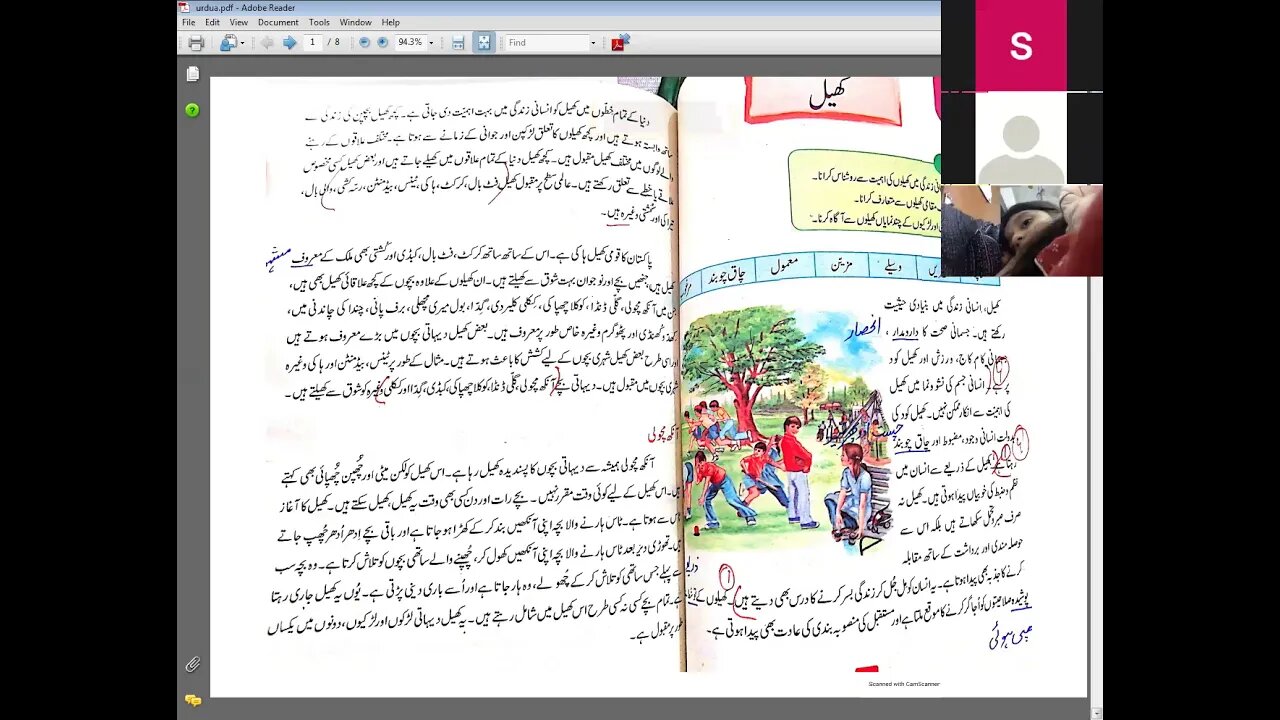 urdua.pdf - Adobe Reader
File Edit View Document Tools Window Help
1 / 8 94.3% Find
S
کھیل
زندگی میں کھیلوں کی اہمیت سے روشناس کرانا۔
مقامی کھیلوں سے متعارف کرانا۔
اور لڑکیوں کے چند نمایاں کھیلوں سے آگاہ کرنا۔
وسیلے مزین معمول چاق چوبند
کھیل، انسانی زندگی میں بنیادی حیثیت
رکھتے ہیں۔ جسمانی صحت کا دارومدار،
انحصار
کام کاج، ورزش اور کھیل کود
پر ہے۔ انسانی جسم کی نشوونما میں کھیل
کی اہمیت سے انکار ممکن نہیں۔ کھیل کود کی
بدولت انسانی وجود، مضبوط اور چاق چوبند
رہتا ہے۔ کھیل کے ذریعے سے انسان میں
نظم و ضبط کی خوبیاں پیدا ہوتی ہیں۔ کھیل نہ
صرف صبر و تحمل سکھاتے ہیں بلکہ اس سے
حوصلہ مندی اور برداشت کے ساتھ مقابلہ
کرنے کا جذبہ بھی پیدا ہوتا ہے۔ یہ انسان کو مل جُل کر زندگی بسر کرنے کا درس بھی دیتے ہیں۔ کھیلوں کے
پوشیدہ صلاحیتوں کو اُجاگر کرنے کا موقع ملتا ہے اور مستقبل کی منصوبہ بندی کی عادت بھی پیدا ہوتی ہے۔
چھپی ہوئی
دنیا کے تمام خطوں میں کھیل کو انسانی زندگی میں بہت اہمیت دی جاتی ہے۔ کچھ کھیل بچپن کی زندگی سے
وابستہ ہوتے ہیں اور کچھ کھیلوں کا تعلق لڑکپن اور جوانی کے زمانے سے ہوتا ہے۔ مختلف علاقوں کے رہنے
والے لوگوں میں مختلف کھیل مقبول ہیں۔ کچھ کھیل دنیا کے تمام علاقوں میں کھیلے جاتے ہیں اور بعض کھیل کسی مخصوص
خطے سے تعلق رکھتے ہیں۔ عالمی سطح پر مقبول کھیل فٹ بال، کرکٹ، ہاکی، ٹینس، بیڈمنٹن، رسّہ کشی، والی بال،
تیراکی اور کُشتی وغیرہ ہیں۔
پاکستان کا قومی کھیل ہاکی ہے۔ اس کے ساتھ ساتھ کرکٹ، فٹ بال، کبڈی اور کُشتی بھی ملک کے معروف
مشہور
کھیل ہیں، جنھیں بچے اور نوجوان بہت شوق سے کھیلتے ہیں۔ ان کھیلوں کے علاوہ بچوں کے کچھ علاقائی کھیل بھی ہیں،
جن میں آنکھ مچولی، گلّی ڈنڈا، کوکلا چھپاکی، ککلی کلیر دی، گِدّا، بول میری مچھلی، برف پانی، چندا کی چاندنی میں،
اور پٹھوگرم وغیرہ خاص طور پر معروف ہیں۔ بعض کھیل دیہاتی بچوں میں بڑے معروف ہوتے ہیں
اور اسی طرح بعض کھیل شہری بچوں کے لیے کشش کا باعث ہوتے ہیں۔ مثال کے طور پر ٹینس، بیڈمنٹن اور ہاکی وغیرہ
شہری بچوں میں مقبول ہیں۔ دیہاتی بچے آنکھ مچولی، گلّی ڈنڈا، کوکلا چھپاکی، کبڈی، گِدّا اور ککلی وغیرہ کو شوق سے کھیلتے ہیں۔
آنکھ مچولی
آنکھ مچولی ہمیشہ سے دیہاتی بچوں کا پسندیدہ کھیل رہا ہے۔ اس کھیل کو لکن میٹی اور چُھپن چُھپائی بھی کہتے
ہیں۔ اس کھیل کے لیے کوئی وقت مقرر نہیں۔ بچے رات اور دن کسی بھی وقت یہ کھیل، کھیل سکتے ہیں۔ کھیل کا آغاز
ٹاس سے ہوتا ہے۔ ٹاس ہارنے والا بچہ اپنی آنکھیں بند کر کے کھڑا ہو جاتا ہے اور باقی بچے اِدھر اُدھر چُھپ جاتے
ہیں۔ تھوڑی دیر بعد ٹاس ہارنے والا بچہ اپنی آنکھیں کھول کر، چُھپنے والے ساتھی بچوں کو تلاش کرتا ہے۔ وہ بچہ سب
سے پہلے جس ساتھی کو تلاش کر کے چُھو لے، وہ ہار جاتا ہے اور اُسے باری دینی پڑتی ہے۔ یُوں یہ کھیل جاری رہتا
ہے۔ تمام بچے کسی نہ کسی طرح اس کھیل میں شامل رہتے ہیں۔ یہ کھیل دیہاتی لڑکوں اور لڑکیوں، دونوں میں یکساں
طور پر مقبول ہے۔
Scanned with CamScanner